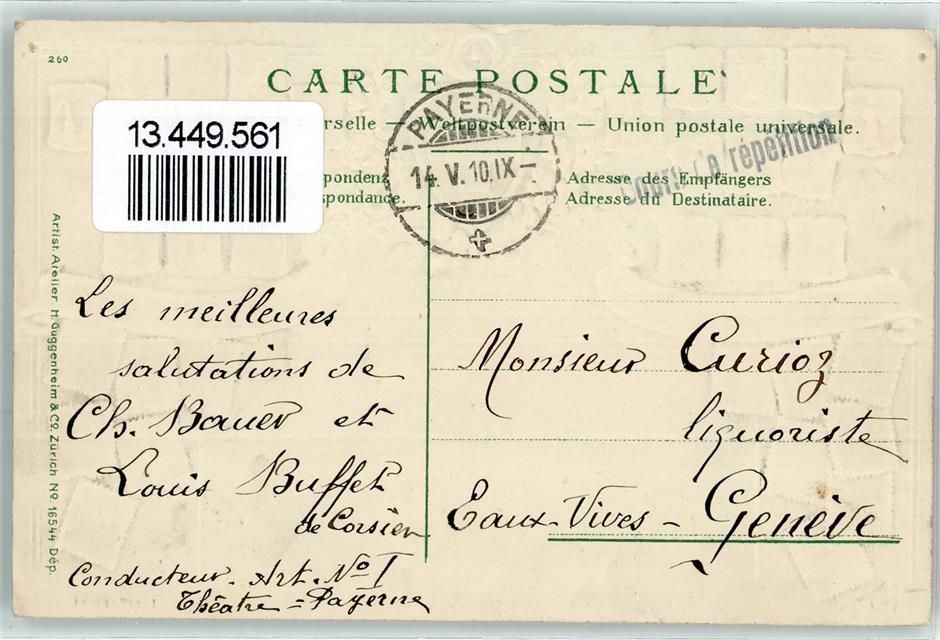 260
CARTE POSTALE
13.449.561
rselle — Weltpostverein — Union postale universelle.
PAYERNE
14.V.10.IX-
Cours de répétition
pondenz
spondance.
Adresse des Empfängers
Adresse du Destinataire.
Artist. Atelier H. Guggenheim & Co. Zürich No. 16544 Dép.
Les meilleures
salutations de
Ch. Bauer et
Louis Buffet
de Corsier
Conducteur. Art. No I
Théâtre = Payerne
Monsieur Curioz
liquoriste
Eaux-Vives - Genève